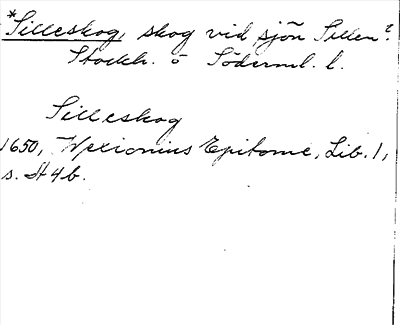 *Silleskog, skog vid sjön Sillen?
Stockh. o Söderml. l.
Silleskog
1650, Wexionius Epitome, Lib. 1,
s. H 4b.